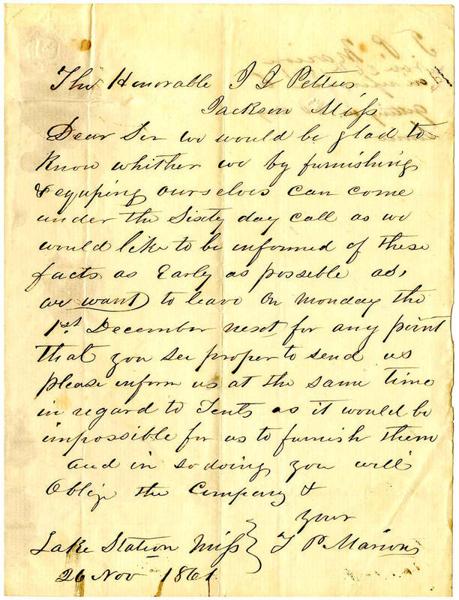 The Honorable J J Pettus
Jackson Miss
Dear Sir we would be glad to
Know whether we by furnishing
& equping ourselves can come
under the Sixty day call as we
would like to be informed of these
facts as Early as possible as,
we want to leave on Monday the
1st December next for any point
that you see proper to send us
please inform us at the same time
in regard to Tents as it would be
impossible for us to furnish them
and in so doing you will
Oblige the Company &
your
Lake Station Miss } T P Marion
26 Nov 1861